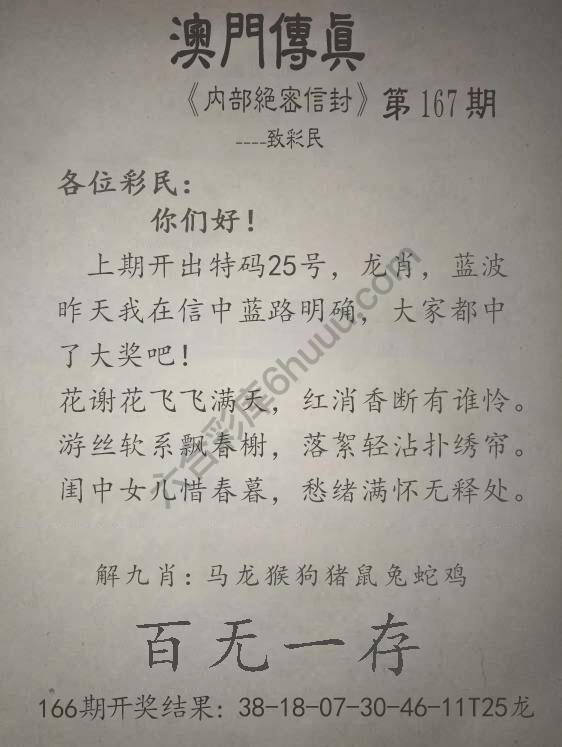 澳門傳眞
《内部絕密信封》第167期
----致彩民
各位彩民：
你们好！
上期开出特码25号，龙肖，蓝波
昨天我在信中蓝路明确，大家都中
了大奖吧！
花谢花飞飞满天，红消香断有谁怜。
游丝软系飘春榭，落絮轻沾扑绣帘。
闺中女儿惜春暮，愁绪满怀无释处。
解九肖：马龙猴狗猪鼠兔蛇鸡
百无一存
166期开奖结果：38-18-07-30-46-11T25龙
六合彩库6huuu.com